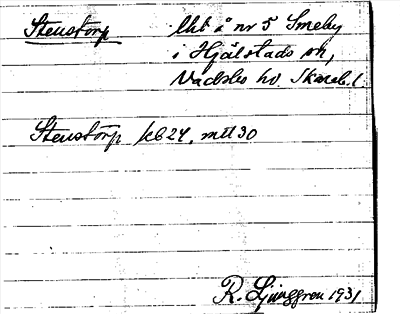 Stenstorp lht å nr 5 Smeby
i Hjälstads sn,
Vadsbo hd. Skarab. l.
Stenstorp kb 24, mtl 30
R. Ljunggren 1931